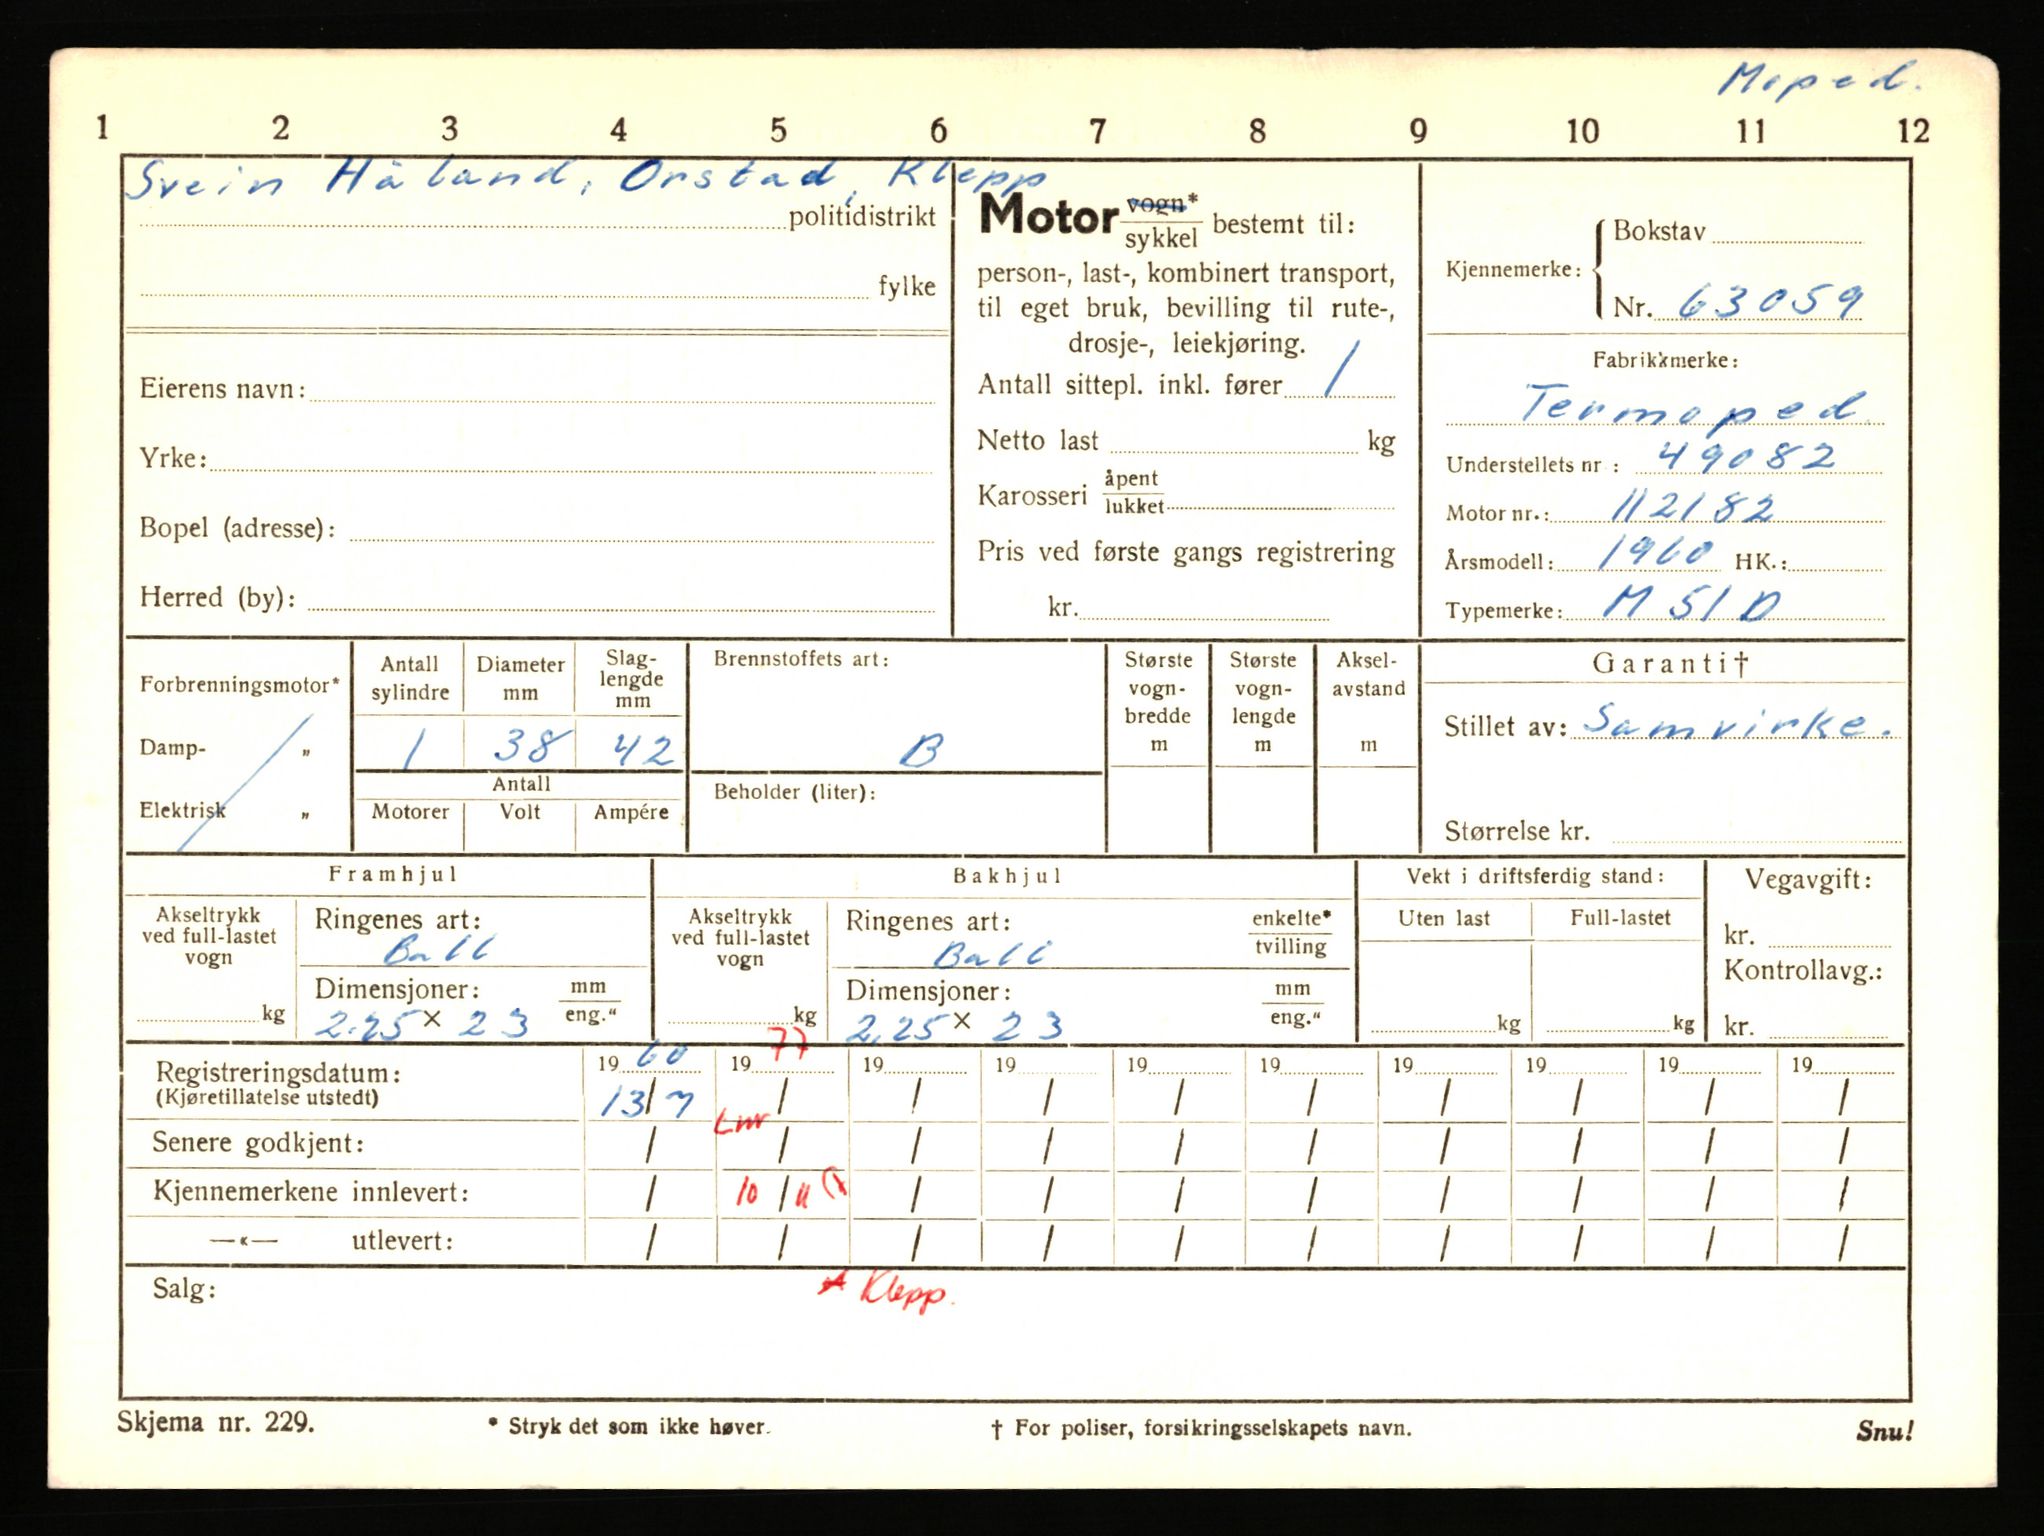 Moped.
1 2 3 4 5 6 7 8 9 10 11 12
Svein Håland, Orstad, Klepp
politidistrikt
fylke
Eierens navn:
Yrke:
Bopel (adresse):
Herred (by):
Motor vogn* / sykkel bestemt til:
person-, last-, kombinert transport,
til eget bruk, bevilling til rute-,
drosje-, leiekjøring.
Antall sittepl. inkl. fører 1
Netto last kg
Karosseri åpent / lukket
Pris ved første gangs registrering
kr.
Kjennemerke: Bokstav
Nr. 63059
Fabrikkmerke:
Termoped.
Understellets nr.: 49082
Motor nr.: 112182
Årsmodell: 1960 HK.:
Typemerke: M 51 D
Forbrenningsmotor*
Damp- „
Elektrisk „
Antall sylindre Diameter mm Slag-lengde mm
1 38 42
Antall
Motorer Volt Ampére
Brennstoffets art:
B
Beholder (liter):
Største vogn-bredde m
Største vogn-lengde m
Aksel-avstand m
Garanti†
Stillet av: Samvirke.
Størrelse kr.
Framhjul
Akseltrykk ved full-lastet vogn
kg
Ringenes art:
Ball
Dimensjoner: mm / eng.“
2.25 × 23
Bakhjul
Akseltrykk ved full-lastet vogn
kg
Ringenes art: enkelte* / tvilling
Ball
Dimensjoner: mm / eng.“
2.25 × 23
Vekt i driftsferdig stand:
Uten last Full-lastet
kg kg
Vegavgift:
kr.
Kontrollavg.:
kr.
Registreringsdatum: 19 60 19 77 19 19 19 19 19 19 19 19
(Kjøretillatelse utstedt) 13/7 / / / / / / / / /
Senere godkjent: / / / / / / / / / /
Kjennemerkene innlevert: / 10/11 / / / / / / / /
—«— utlevert: / / / / / / / / / /
Salg:
Klepp.
Skjema nr. 229. * Stryk det som ikke høver. † For poliser, forsikringsselskapets navn. Snu!